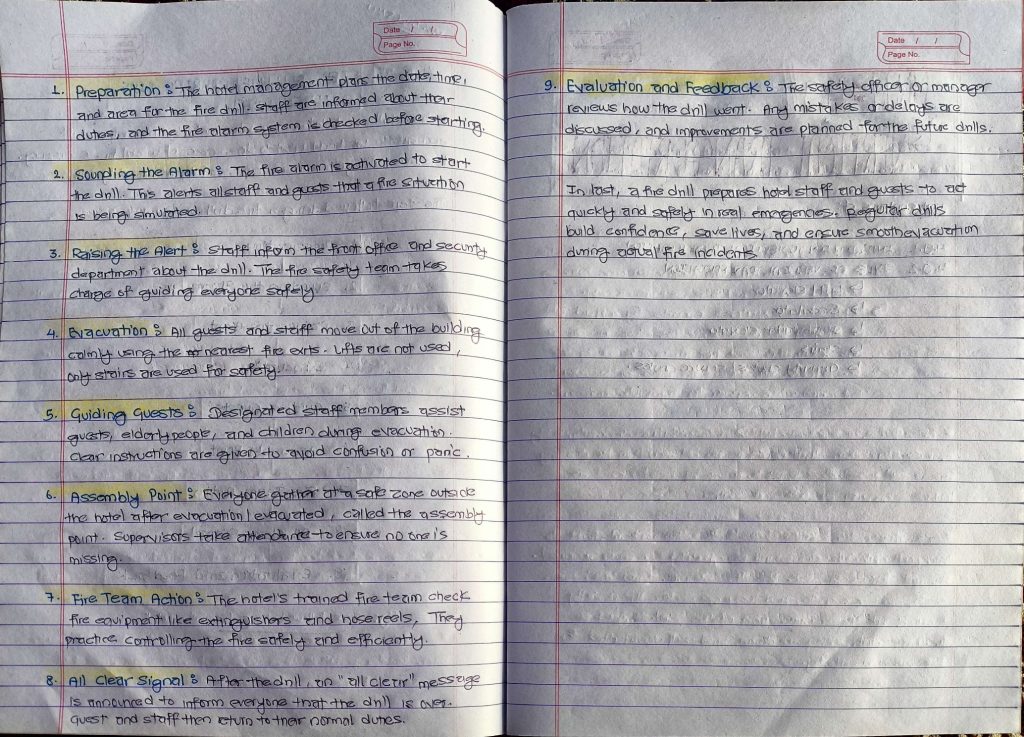 Date / /
Page No.
1. Preparation : The hotel management plans the date, time,
and area for the fire drill. Staff are informed about their
duties, and the fire alarm system is checked before starting.
2. Sounding the Alarm : The fire alarm is activated to start
the drill. This alerts all staff and guests that a fire situation
is being simulated.
3. Raising the Alert : Staff inform the front office and security
department about the drill. The fire safety team takes
charge of guiding everyone safely
4. Evacuation : All guests and staff move out of the building
calmly using the nearest fire exits. Lifts are not used,
only stairs are used for safety.
5. Guiding Guests : Designated staff members assist
guests, elderly people, and children during evacuation.
Clear instructions are given to avoid confusion or panic.
6. Assembly Point : Everyone gather at a safe zone outside
the hotel after evacuation / evacuated, called the assembly
point. Supervisors take attendance to ensure no one is
missing.
7. Fire Team Action : The hotel's trained fire team check
fire equipment like extinguishers and hose reels, They
practice controlling the fire safely and efficiently.
8. All Clear Signal : After the drill, an "all clear" message
is announced to inform everyone that the drill is over.
Guest and staff then return to their normal duties.
Date / /
Page No.
9. Evaluation and Feedback : The safety officer or manager
reviews how the drill went. Any mistakes or delays are
discussed, and improvements are planned for the future drills.
In last, a fire drill prepares hotel staff and guests to act
quickly and safely in real emergencies. Regular drills
build confidence, save lives, and ensure smooth evacuation
during actual fire incidents